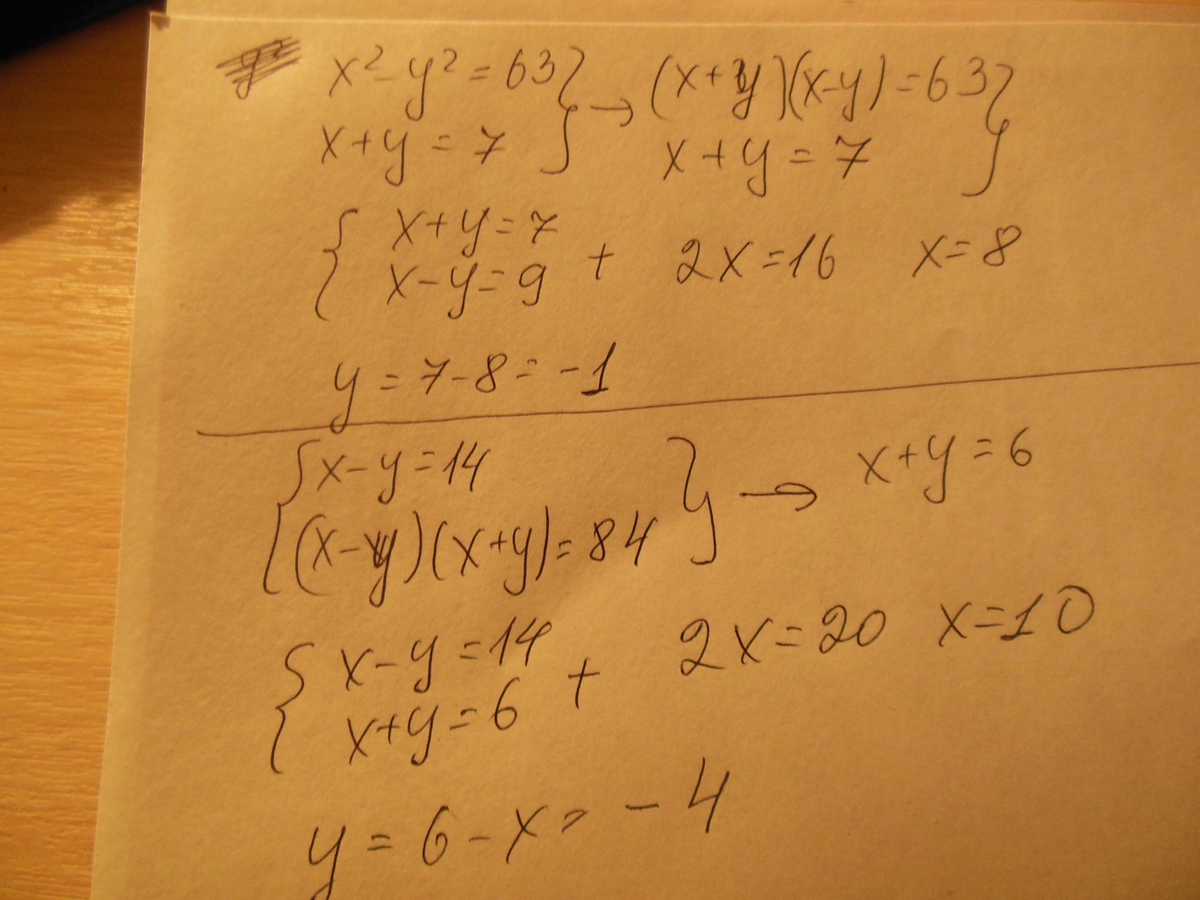 x² - y² = 63 } → (x+y)(x-y) = 63 }
x + y = 7 x + y = 7
{ x+y=7
x-y=9 + 2x=16 x=8
y = 7-8 = -1
{ x-y=14 } → x+y=6
(x-y)(x+y)=84
{ x-y=14
x+y=6 + 2x=20 x=10
y = 6-x = -4